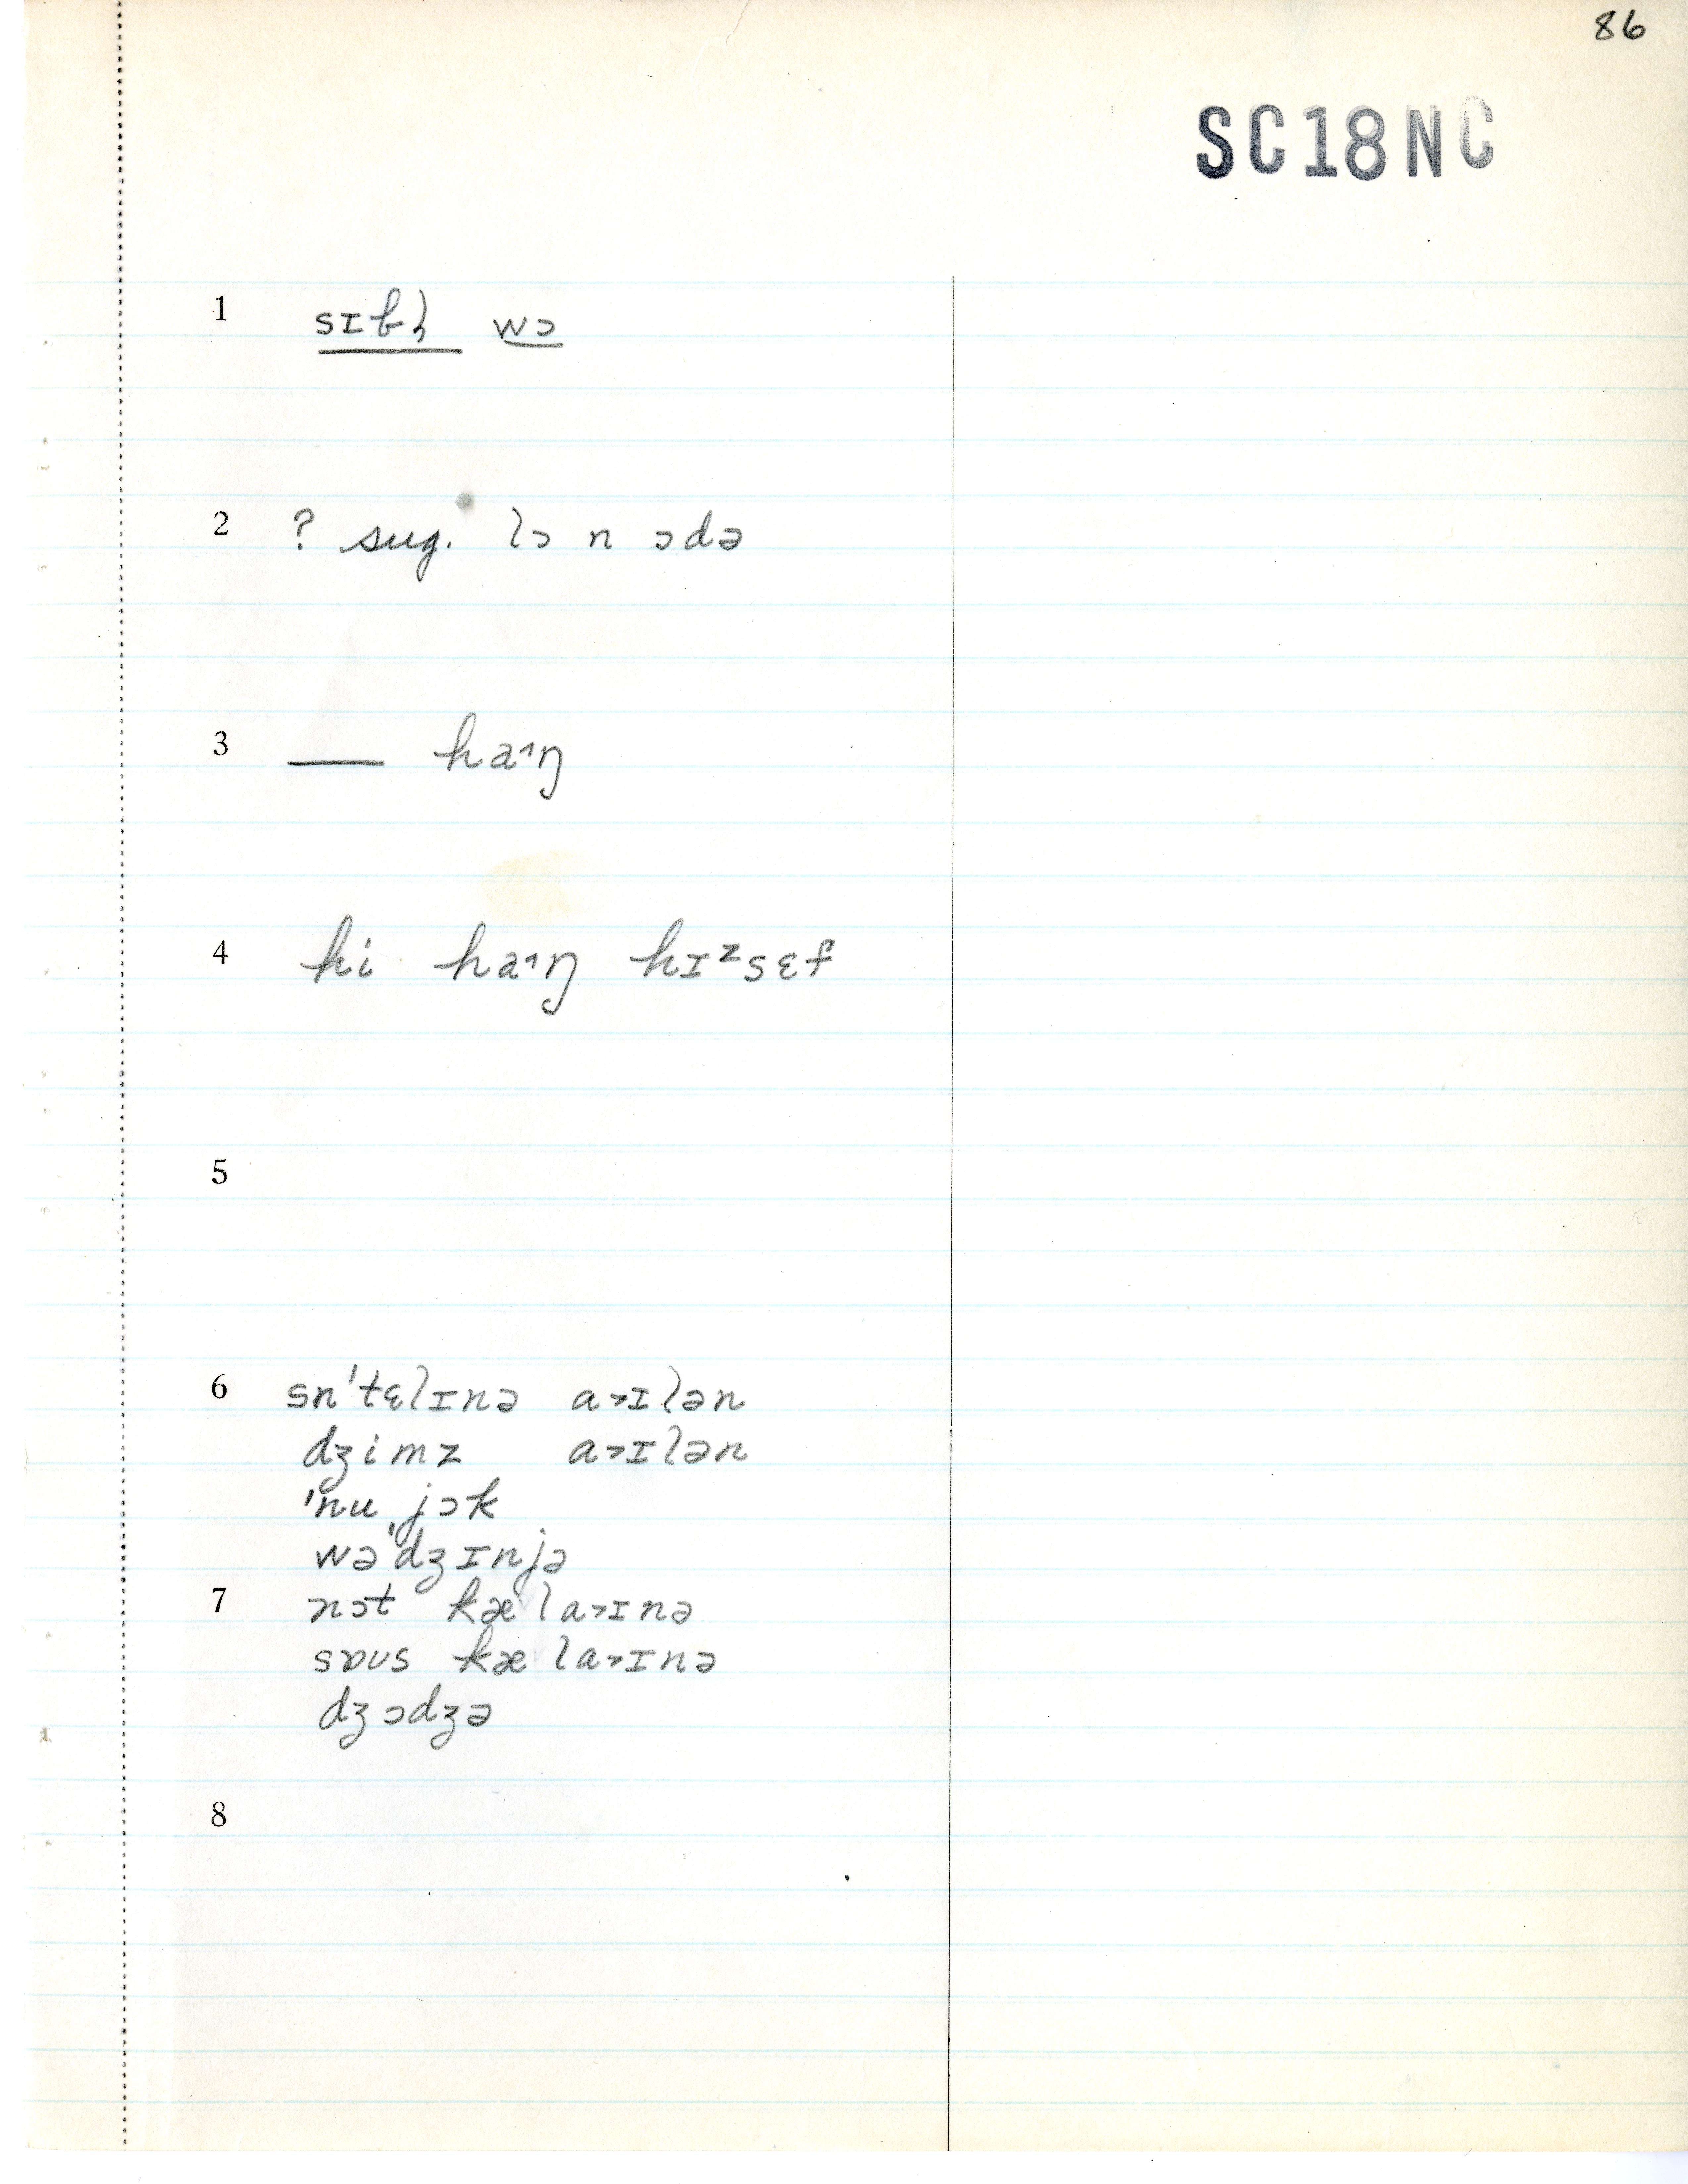 86
SC18NC
1 sɪbl̩ wɔ
2 ? sug. lɔ n ɔdə
3 — ha˄ŋ
4 hi ha˄ŋ hɪᶻsɛf
5
6 sn'tɛlɪnə a˃ɪlən
dʒimz a˃ɪlən
'nu ˌjɔk
wə'dʒɪnjə
7 nɔt kæla˃ɪnə
sɒʊs kæla˃ɪnə
dʒɔdʒə
8